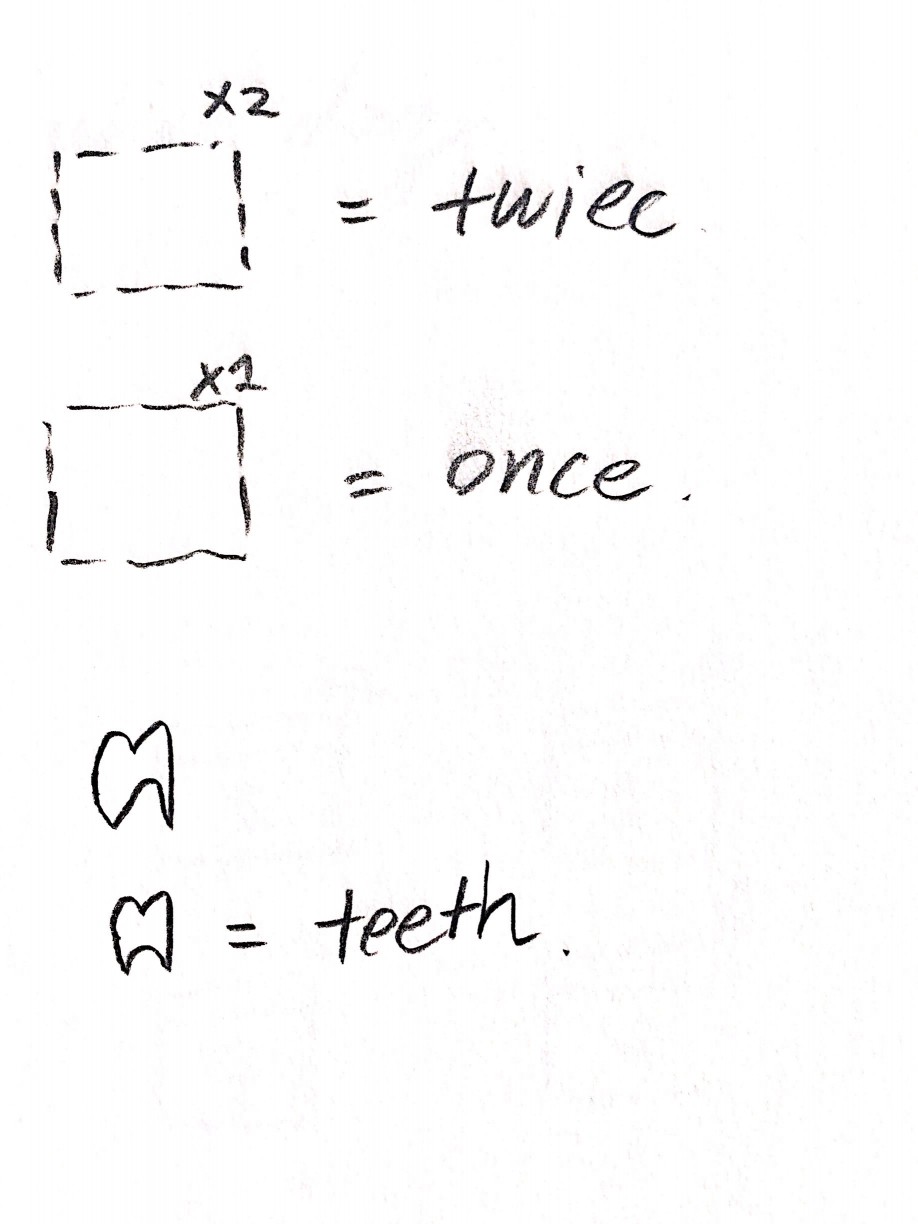 x2
= twiec
x1
= once.
= teeth.